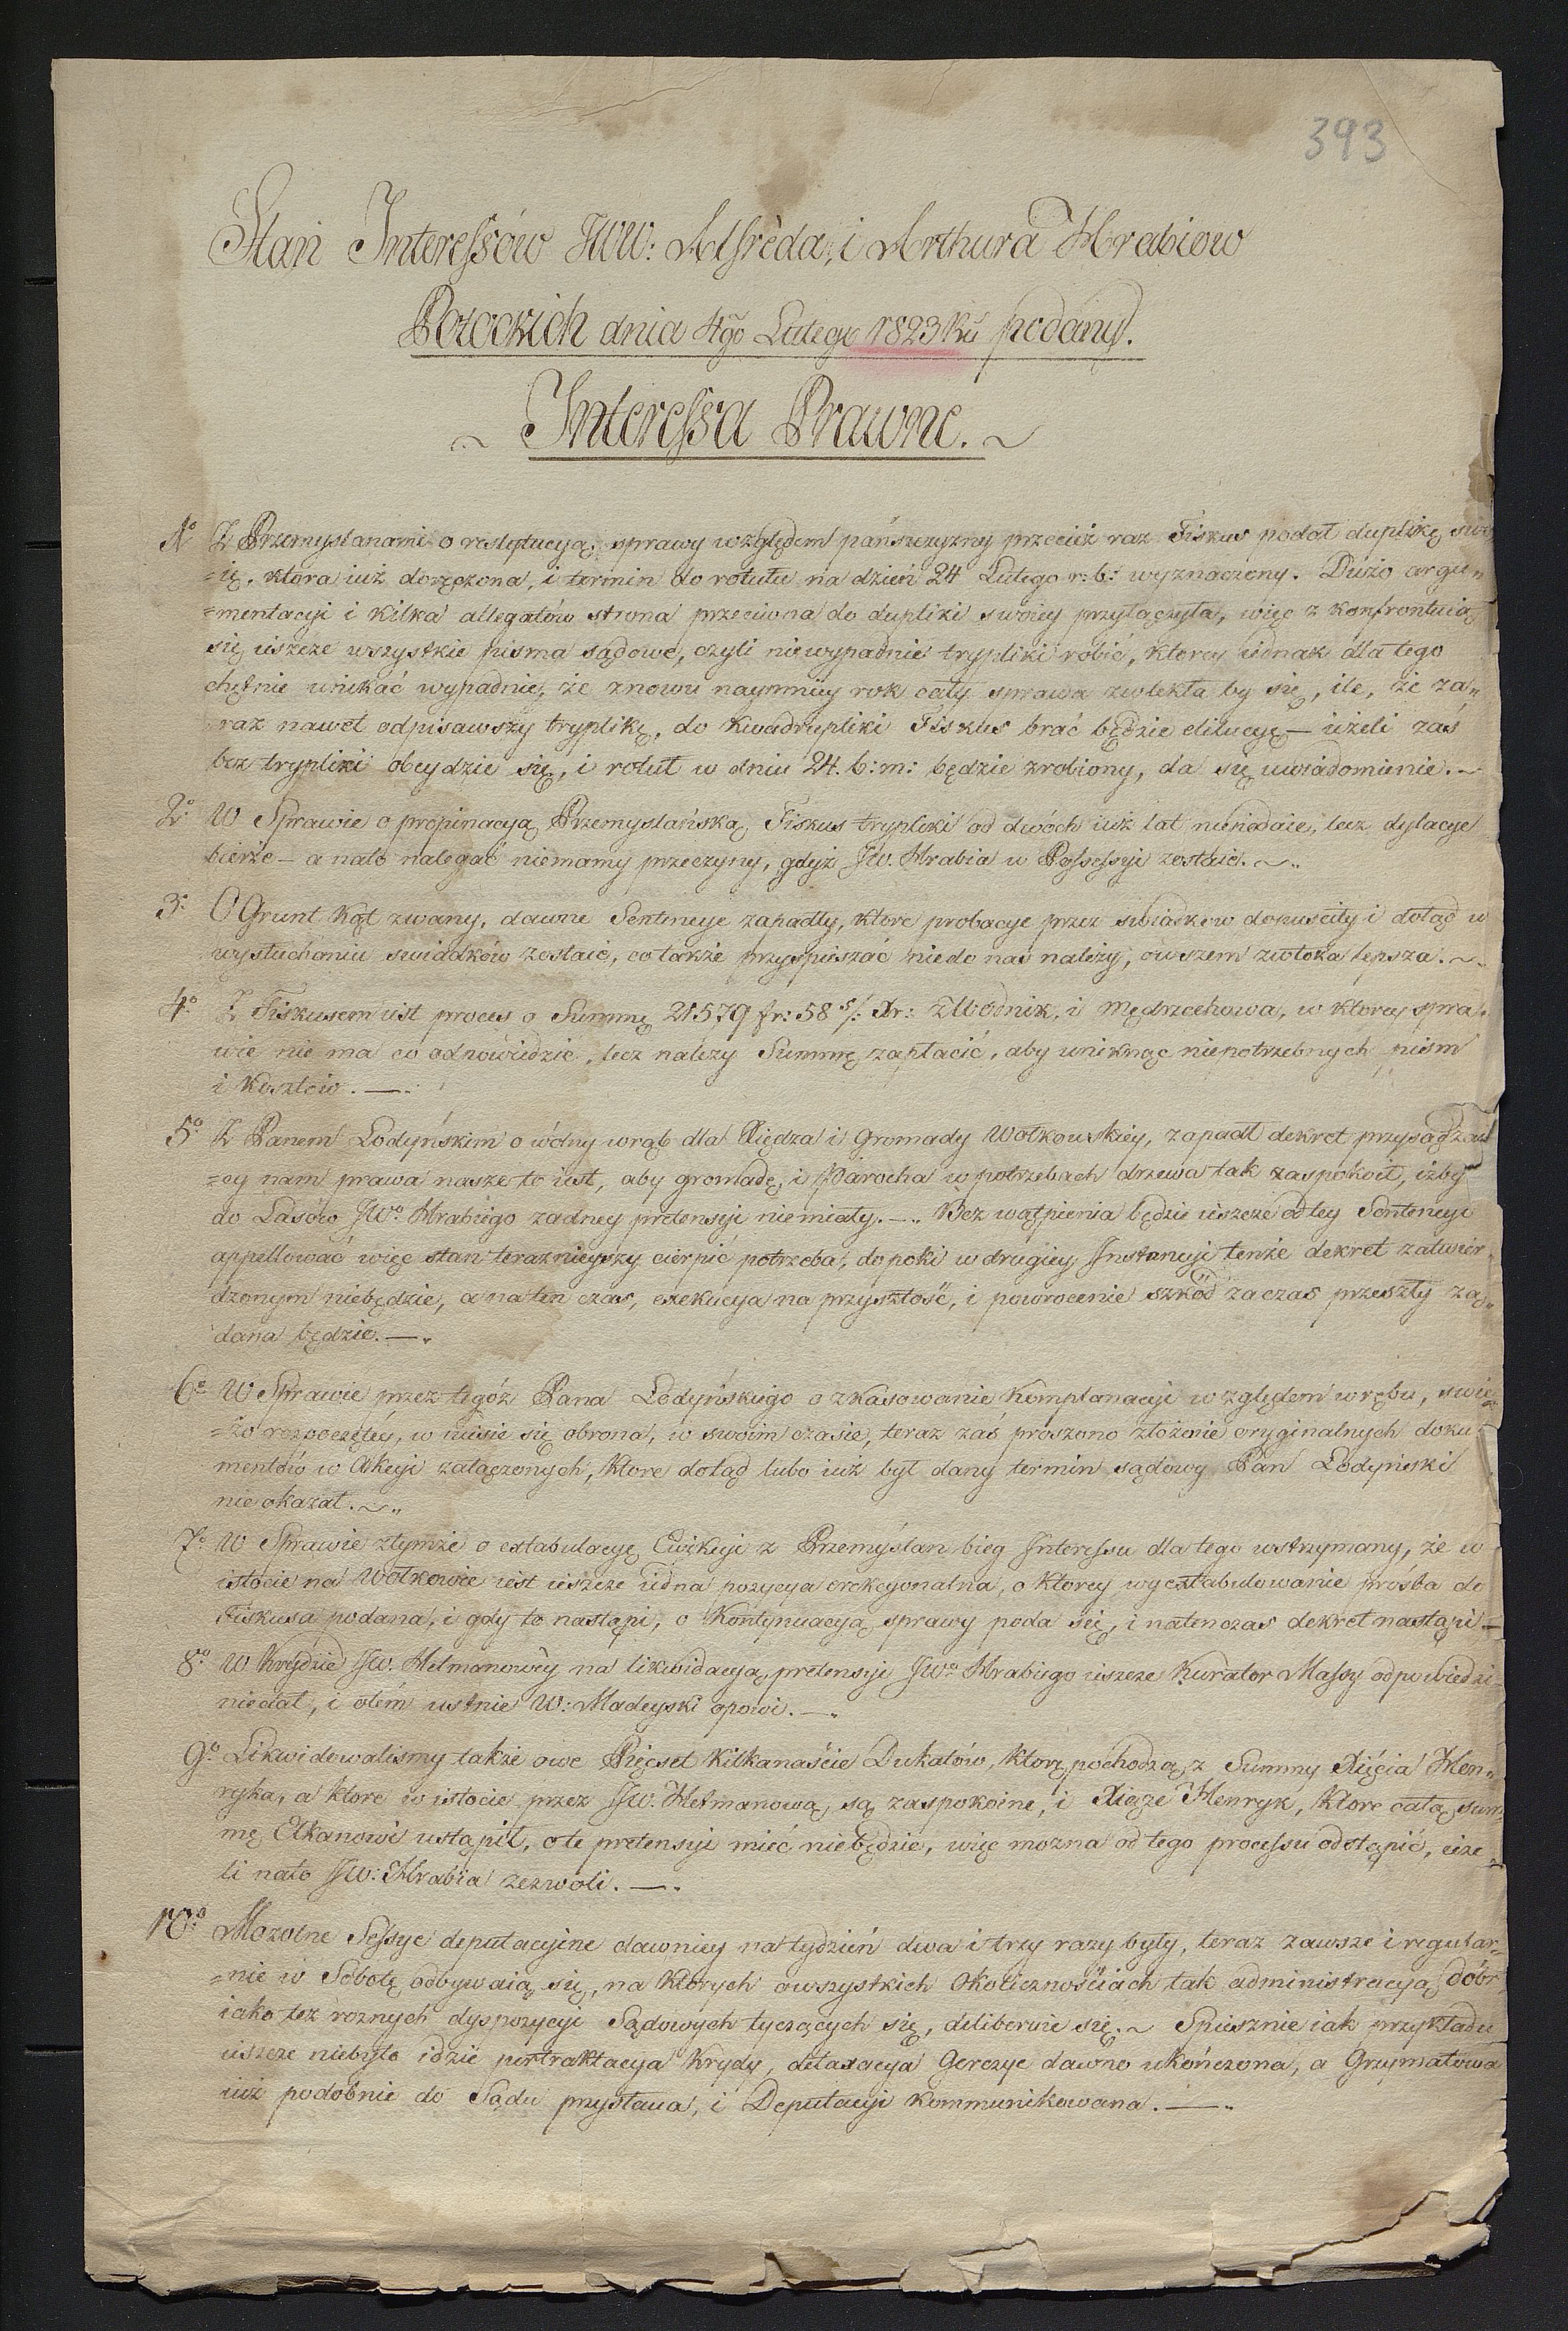 393
Stan Interessów JWW: Alfrèda, i Arthura Hrabiow
Potockich dnia 4go Lutego 1823 Ru podany.
~ Interessa Prawne. ~
1o Z Przemyslanami o restytucyą sprawy względem pańszczyzny przecież raz Fiskus podał duplikę swo
=ię, ktora iuż doręczona, i termin do rotułu na dzień 24 Lutego r: b: wyznaczony. Dużo argu=
=mentacyi i kilka allegatów strona przeciwna do dupliki swoiey przyłączyła, więc z konfrontuią
się ieszcze wszystkie pisma sądowe, czyli niewypadnie trypliki robić, ktorey iednak dla tego
chętnie unikać wypadnie, że znowu naymniey rok cały sprawa zwlekła by się, ile, że za=
raz nawet odpisawszy tryplikę, do kwadrupliki Fiskus brać będzie dilacyę — ieżeli zaś
bez trypliki obeydzie się, i rotuł w dniu 24. b: m: będzie zrobiony, da się uwiadomienie. ~
2o W Sprawie o propinacyą Przemyslańską Fiskus trypliki od dwóch iuż lat niepodaie, lecz dylacye
bierze — a nato nalegać niemamy przeczyny, gdyż JW. Hrabia w Possessyi zostaie. ~
3o O Grunt Kąt zwany, dawne Sentencye zapadły, ktore probacye przez swiadkow dopuscily i dotąd w
wysłuchaniu swiadków zostaie, co także przyspieszać nie do nas należy, owszem zwłoka lepsza. ~
4o Z Fiskusem iest proces o Summę 21579 fr: 58 s/: Xr: z Wodnik, i Mędrzechowa, w ktorey spra=
wie nie ma co odpowiedzie, lecz należy Summę zapłacić, aby uniknąc niepotrzebnych pism
i kosztow. —
5o Z Panem Łodyńskim o wolny wrąb dla Xiędza i Gromady Wołkowskiey, zapadł dekret przysądzaią
=cy nam prawa nasze to iest, aby gromadę, i Parocha w potrzebach drzewa tak zaspokoił, izby
do Lasów JWo Hrabiego zadney pretensyi niemiały. — Bez wątpienia będzie ieszcze od tey Sentencyi
appellować więc stan teraznieyszy cierpić potrzeba, dopoki w drugiey Instancyi tenże dekret zatwier=
dzonym niebędzie, a na ten czas, exekucya na przyszłość, i powrocenie szkód za czas przeszły żą=
dana będzie. —
6o W Sprawie przez tegóż Pana Łodyńskiego o zkasowanie komplanacyi względem wrębu, swie=
=żo rozpoczętey, w niesie się obrona, w swoim czasie, teraz zaś proszono złożenie oryginalnych doku=
mentów w Akcyi załączonych, ktore dotąd lubo iuż był dany termin sądowy Pan Łodyński
nie okazał. ~
7o W Sprawie z tymże o extabulacyę Ewikcyi z Przemyślan bieg Interessu dla tego wstrzymany, że w
istocie na Wołkowie iest ieszcze iedna pozycya erekcyonalna, o ktorey wyextabulowanie prośba do
Fiskusa podana, i gdy to nastąpi, o kontynuacyą sprawy poda się, i natenczas dekret nastąpi —
8o W Krydzie JW. Hetmanowey na likwidacyą pretensyi JWo Hrabiego ieszcze Kurator Massy odpowiedzi
niedał, i otem ustnie W: Madeyski opowi. —
9o Likwidowalismy także owe Pięcset kilkanaście Dukatów, ktore pochodzą z Summy Xięcia Hen=
ryka, a ktore w istocie przez JW. Hetmanową są zaspokoine, i Xiąże Henryk, ktore całą sum
mę Elkanowi ustąpił, o te pretensyi mieć niebędzie, więc mozna od tego processu odstąpić, ieże=
li nato JW: Hrabia zezwoli. —
10o Mozolne Sessye deputacyine dawniey na tydzień dwa i trzy razy były, teraz zawsze i regular=
=nie w Sobotę odbywaią się, na ktorych owszystkich okolicznościach tak administracyą dóbr,
iako tez roznych dyspozycyi Sądowych tyczących się, deliberuie się. ~ Spiesznie iak przykładu
ieszcze niebyło idzie pertraktacya Krydy, detaxacya Gerczyc dawno ukończona, a Grzymałowa
iuż podobnie do Sądu przysłana, i Deputacyi kommunikowana. —